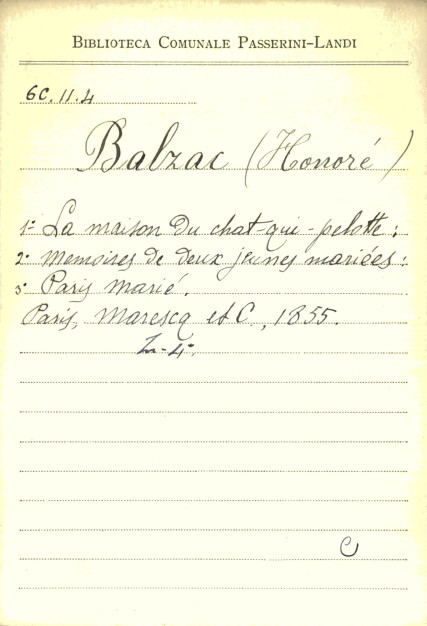 BIBLIOTECA COMUNALE PASSERINI-LANDI
6C.11.4
Balzac (Honoré)
1º La maison du chat-qui-pelotte;
2º Memoires de deux jeunes mariées:
3º Paris marié.
Paris, Marescq et C, 1855.
In-4º
C